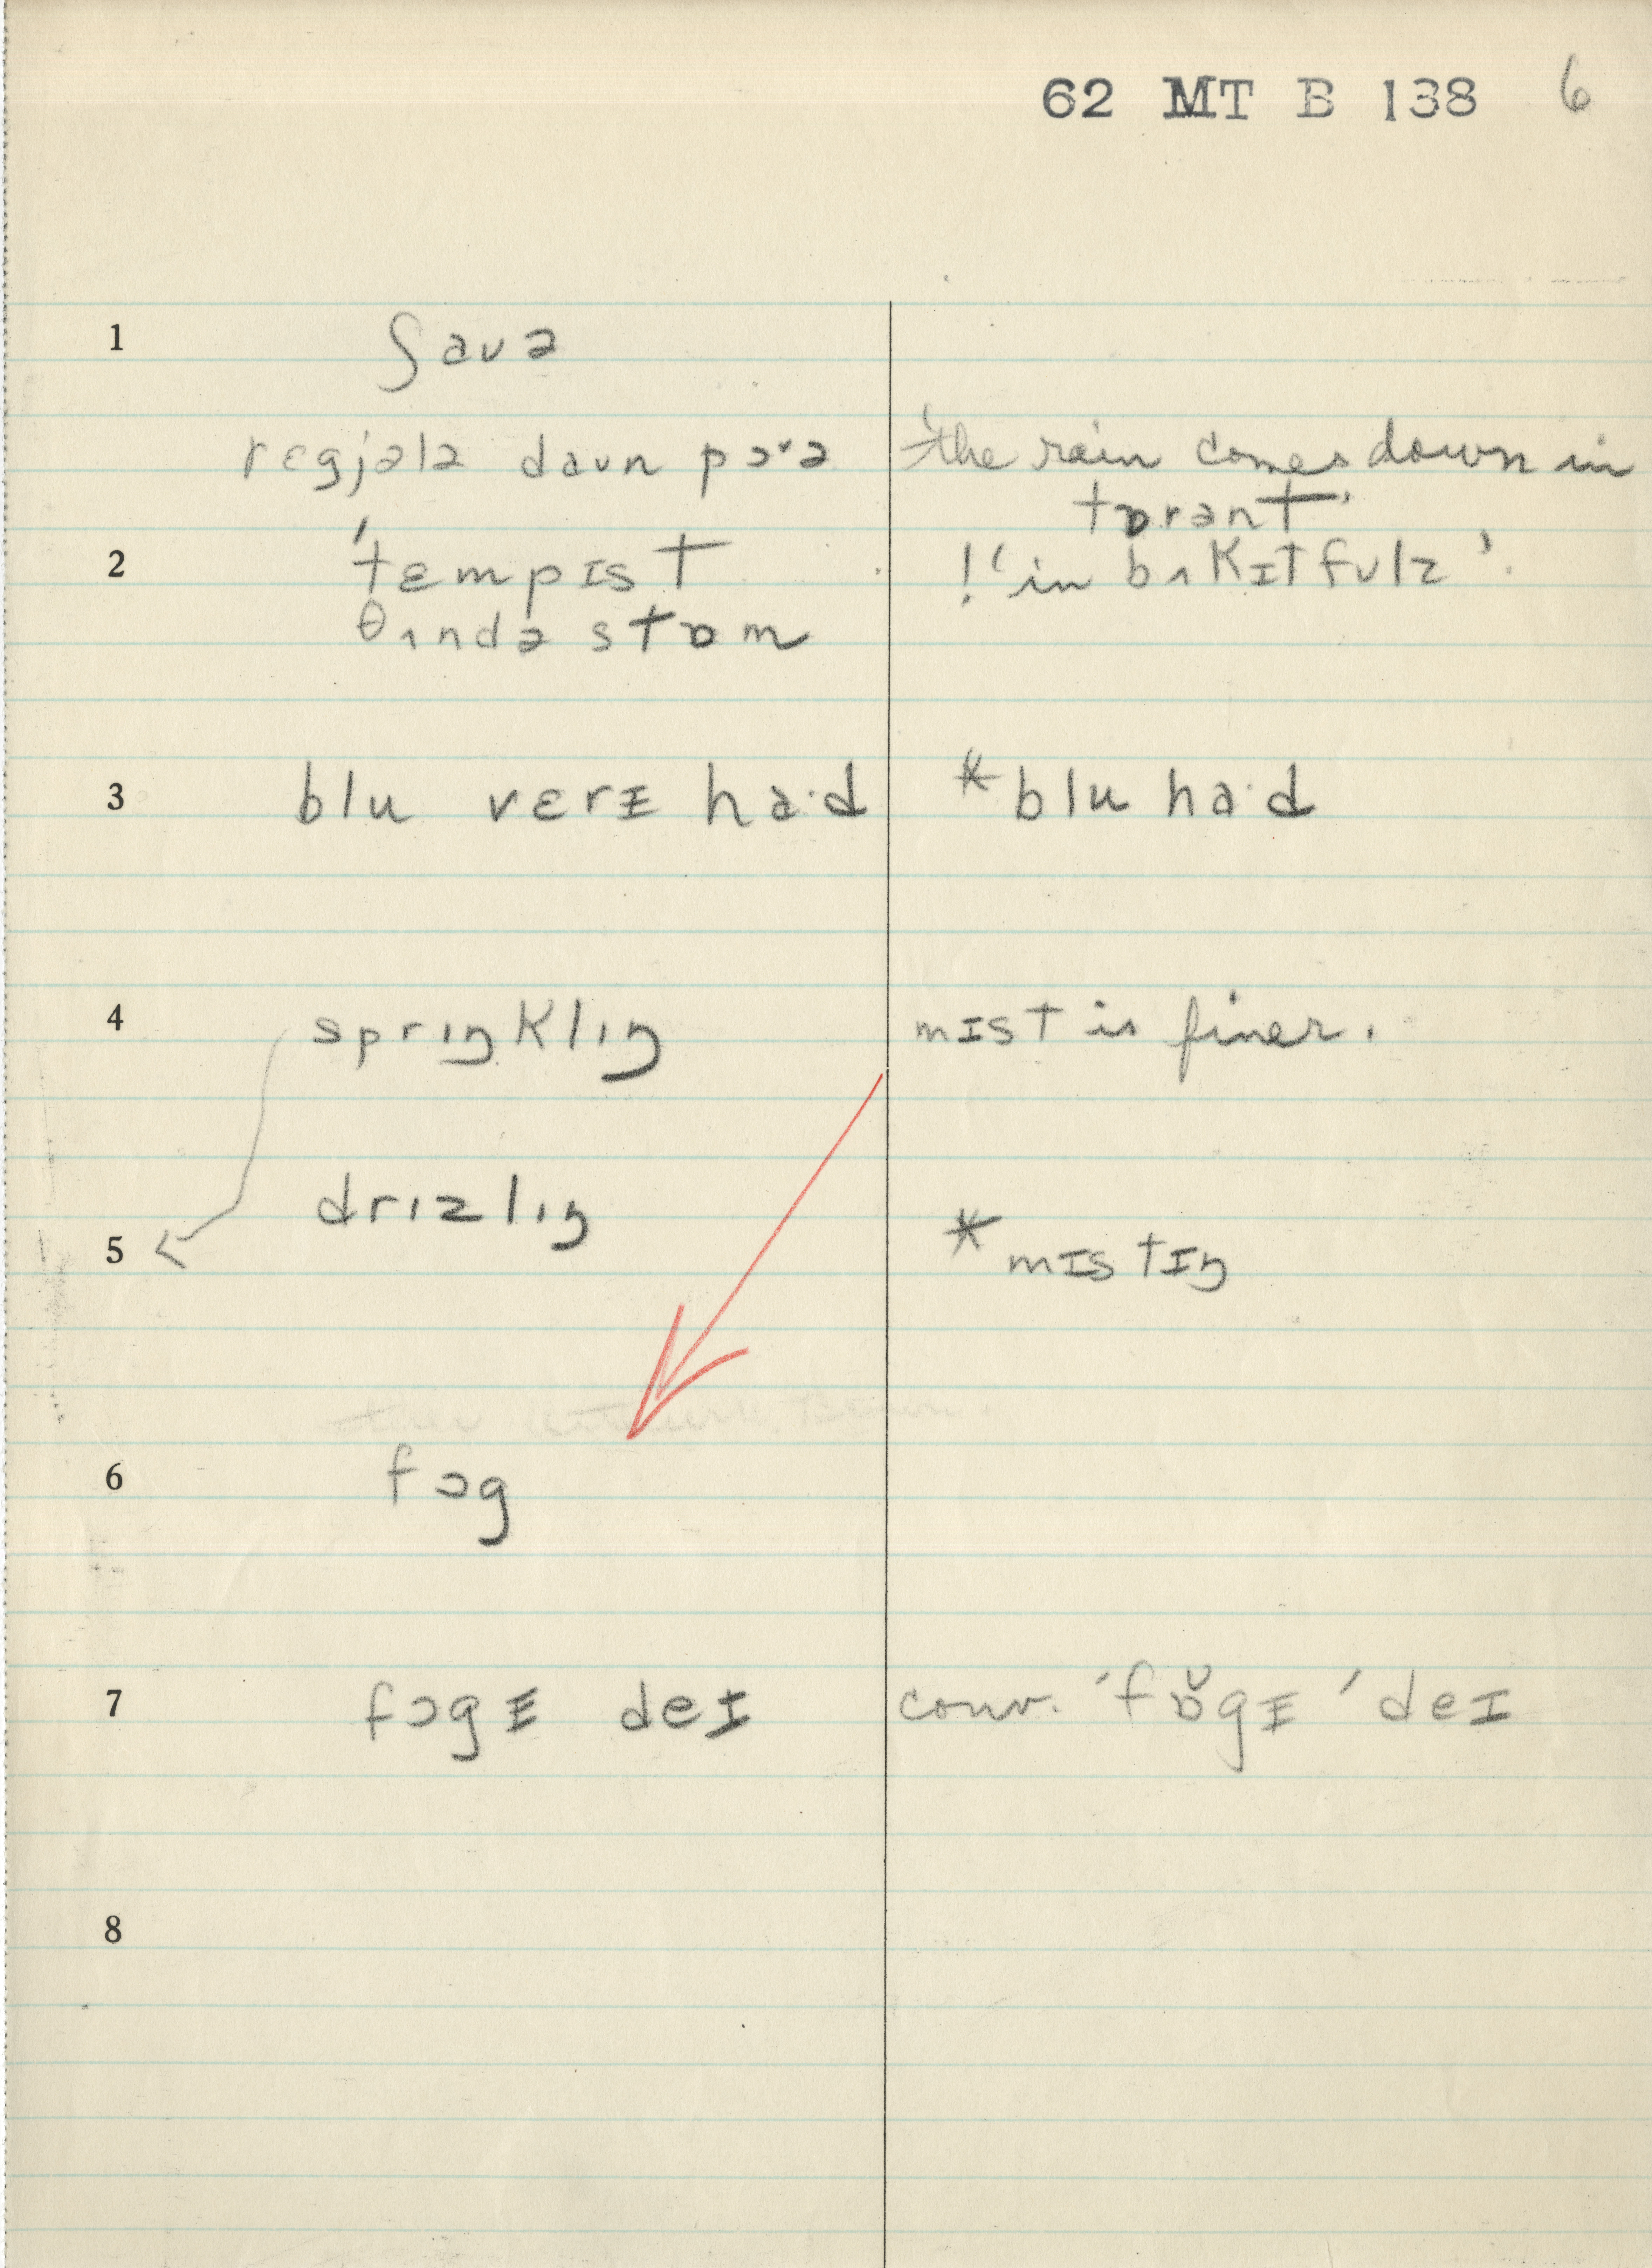 62 MT B 138 6
1 ʃaʊə
rɛgjələ daʊn pɔˑə 'the rain comes down in
tɒrənt'
2 'tɛmpɪst !'in bʌkɪtfʊlz'.
θʌndəstɒm
3 blu vɛrɪ ha·d *blu ha·d
4 sprɪŋklɪŋ mɪst is finer.
drɪzlɪŋ
5 *mɪstɪŋ
6 fɔg
7 fɔgɪ deɪ conv. 'fɒ̆gɪ 'deɪ
8